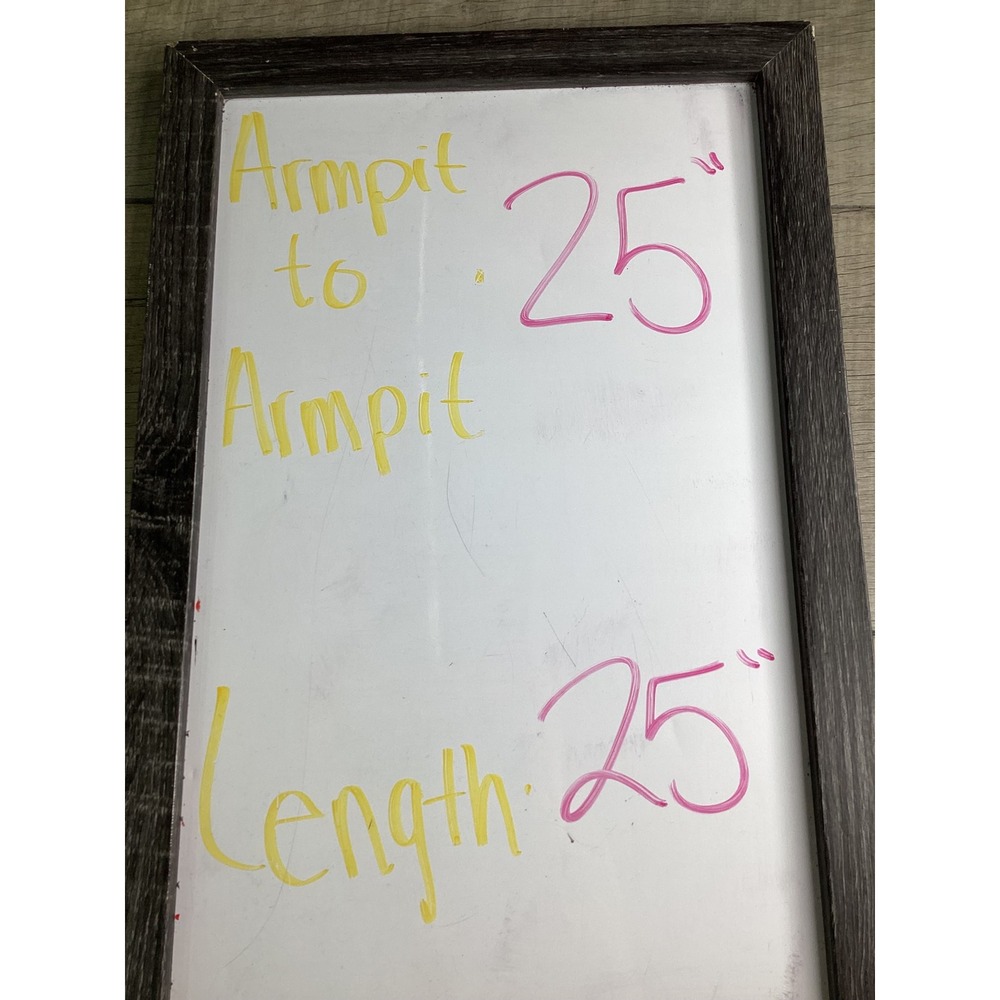 Armpit
to · 25"
Armpit
Length · 25"